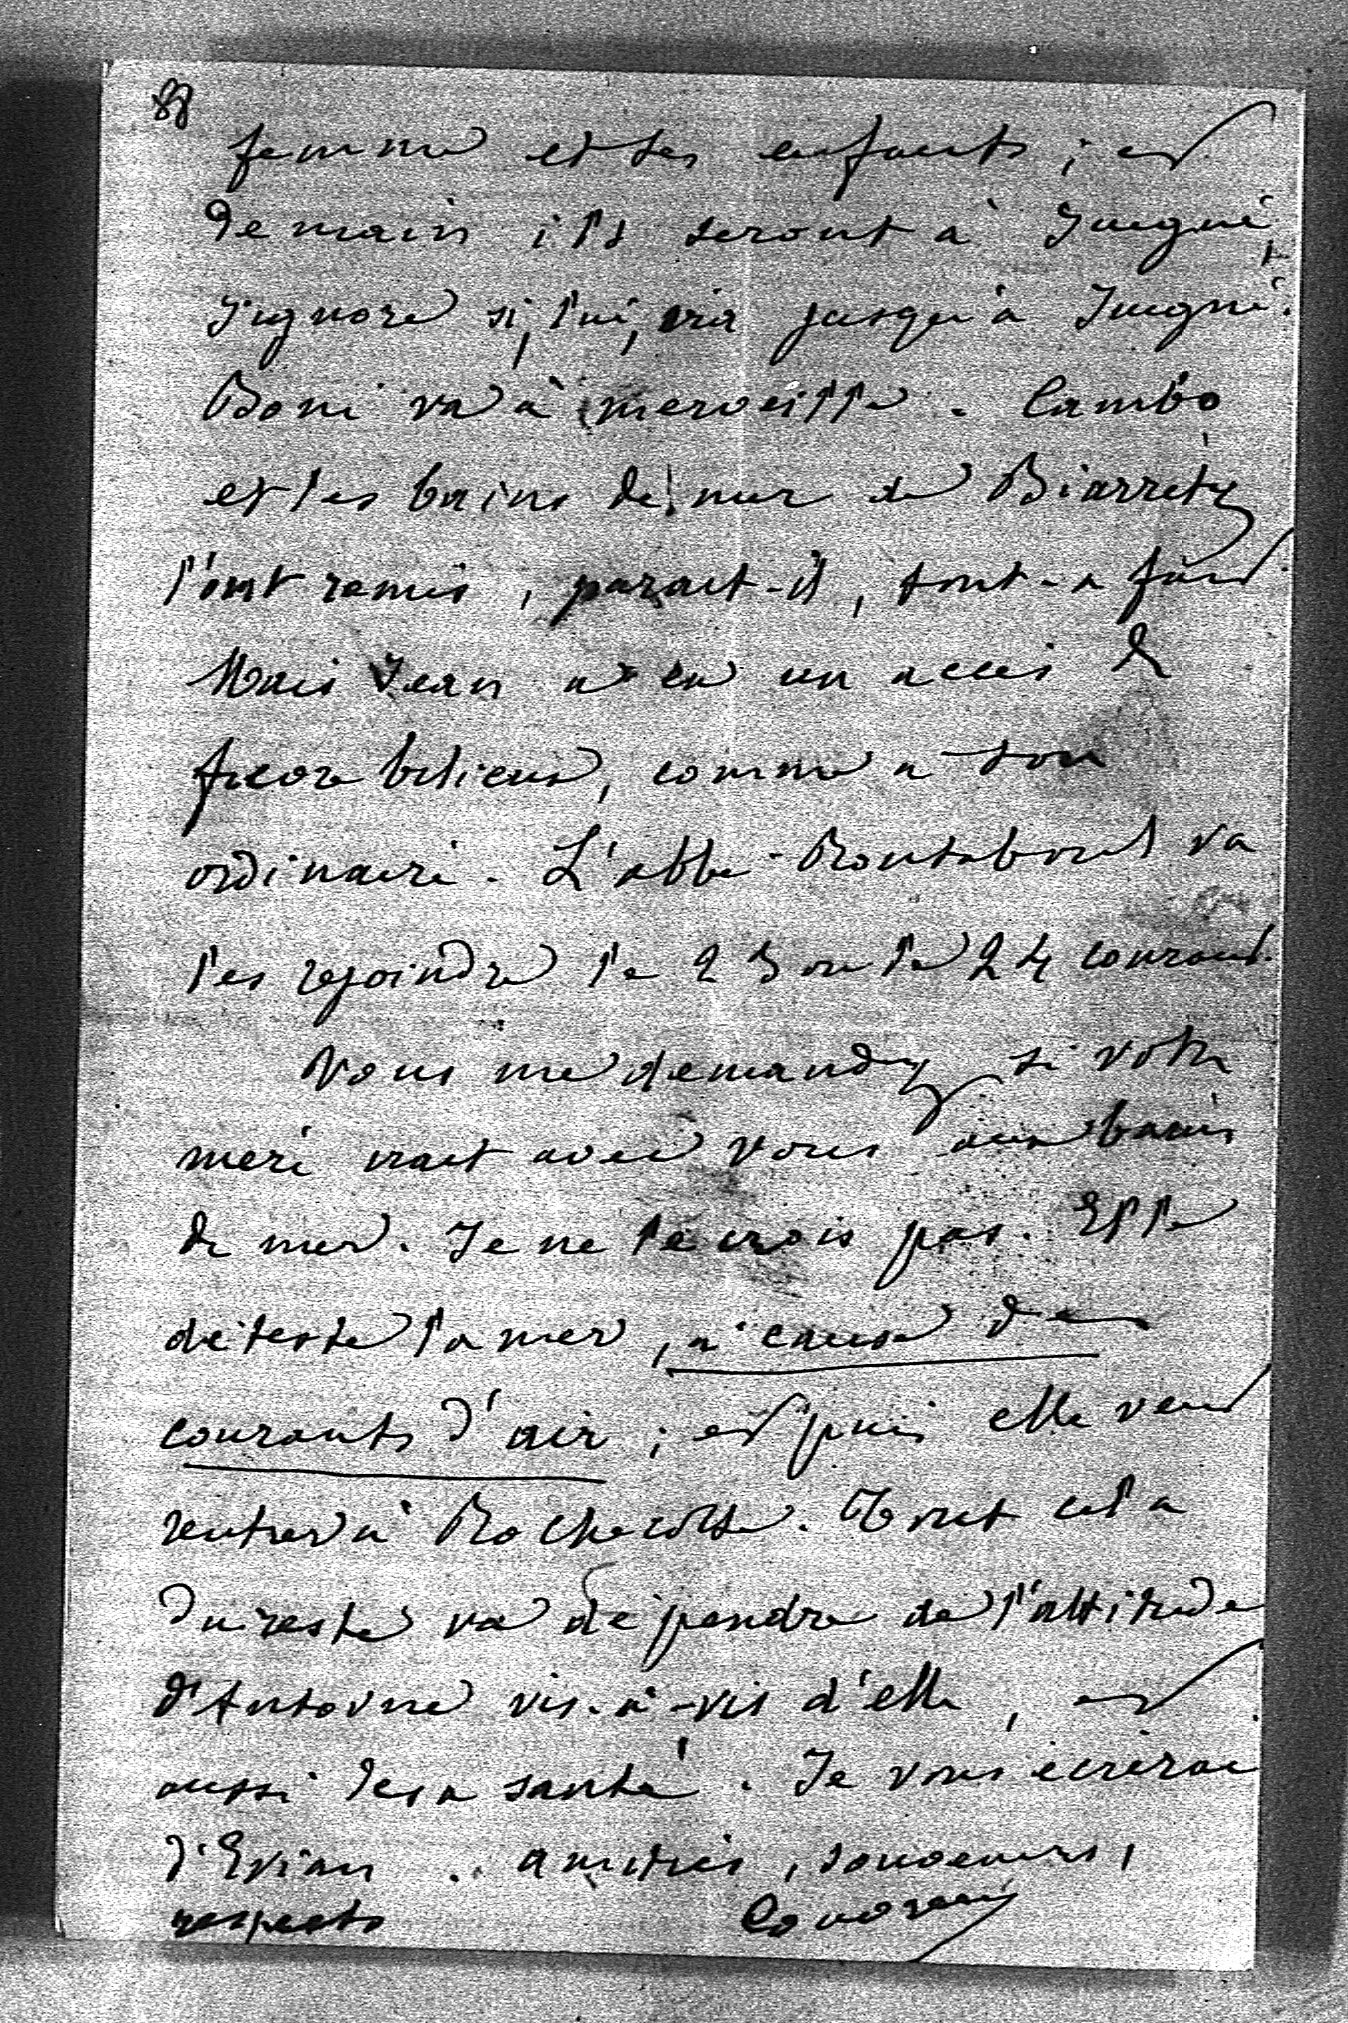 88
femme et ses enfants ; et
demain ils seront à Juigné
J'ignore si, lui, ira jusqu'à Juigné.
Boni va à merveille. Cambo
et les bains de mer de Biarritz
l'ont remis, parait-il, tout-a fait
Mais Jean a eu un acces de
fievre bilieuse, comme a son
ordinaire. L'abbé Rontabourt va
les rejoindre le 23 ou le 24 courant.
Vous me demandez si votre
mère irait avec vous aux bains
de mer. Je ne le crois pas. Elle
déteste la mer, à cause des
courants d'air ; et puis elle veut
rentrer à Rochecotte. Tout cela
du reste va dépendre de l'attitude
d'Antoine vis-à-vis d'elle, et
aussi de sa santé. Je vous écrirai
d'Evian. amitiés, souvenirs,
respects